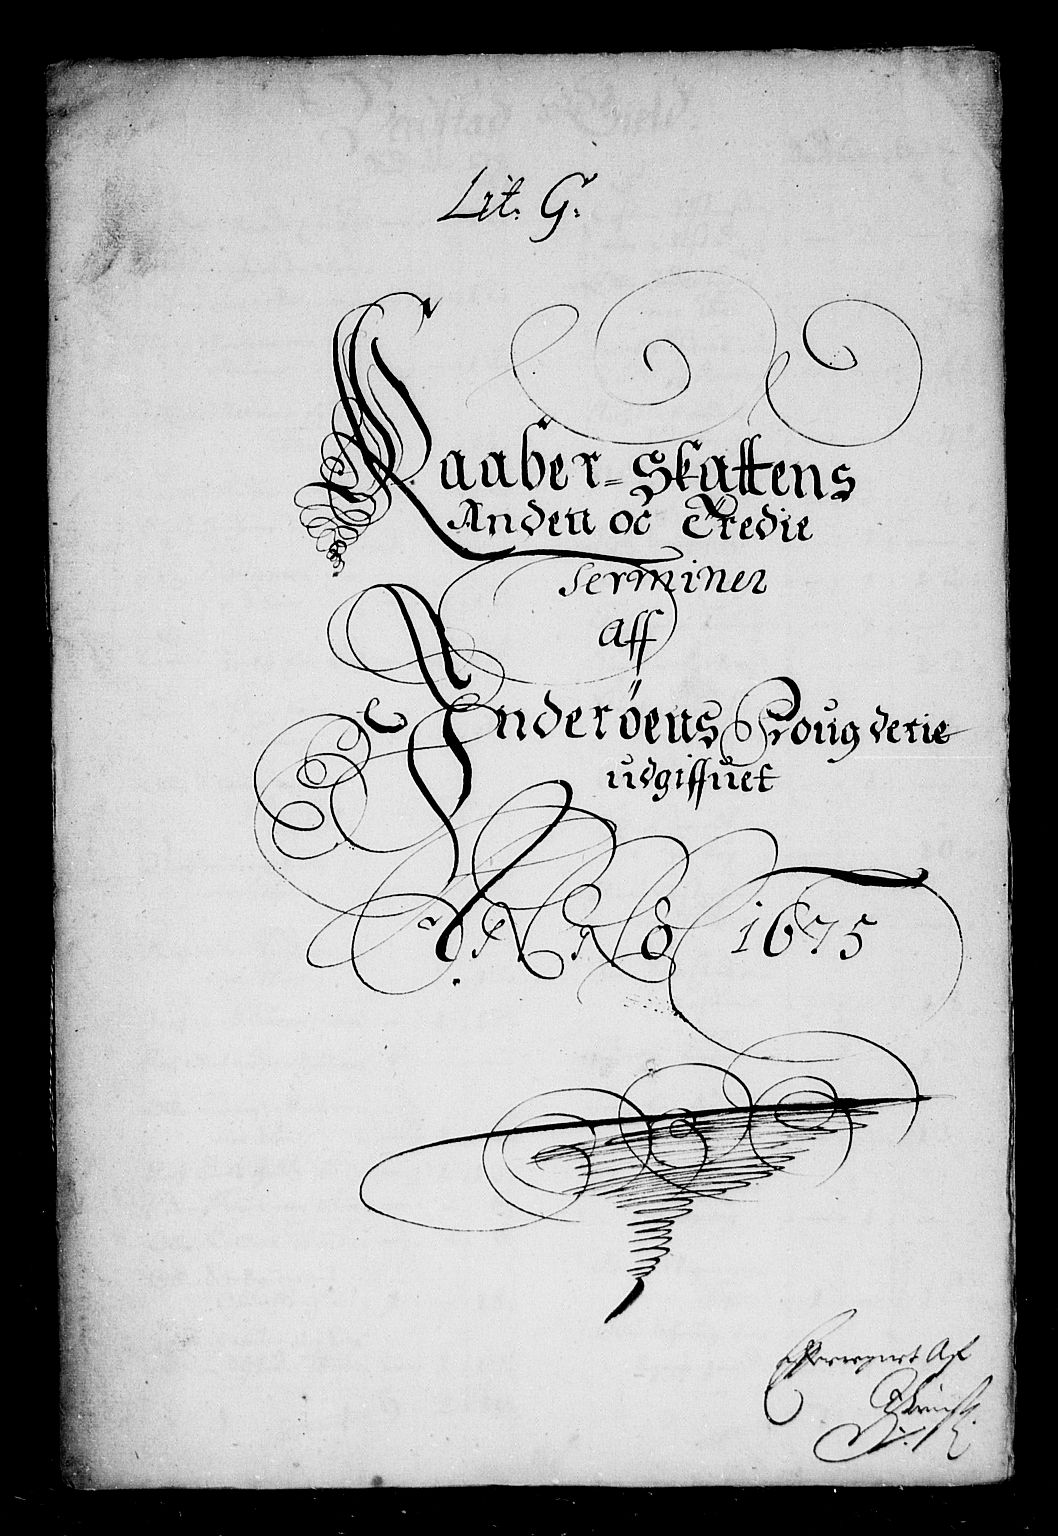 Lit. G.
Kaaber-Skattens
Anden oc Tredie
Terminer
Aff
Inderöens Fougderie
udgiffuet
ANNO 1675
Af